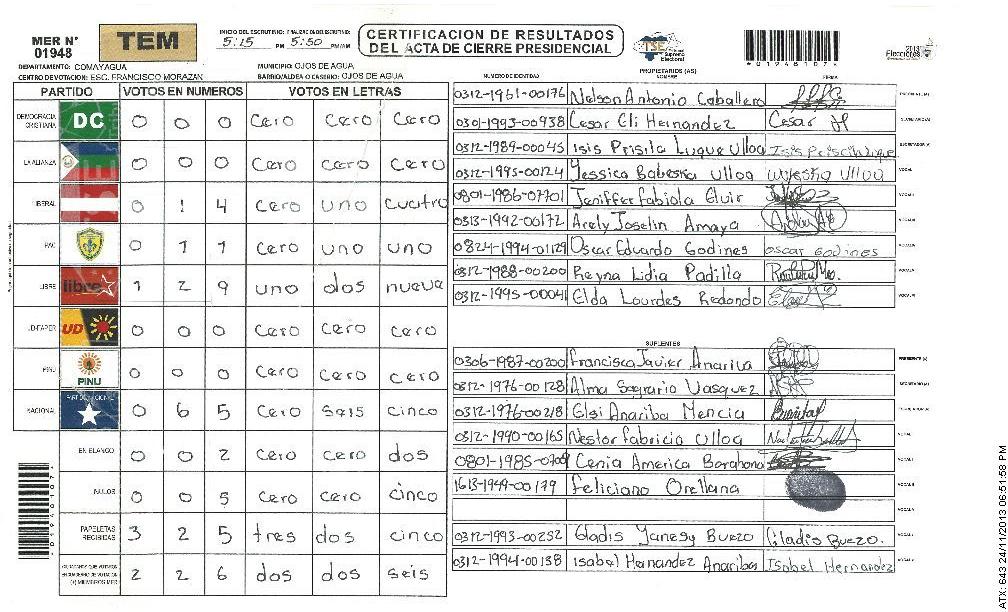 MER N°
01948
TEM
INICIO DEL ESCRUTINIO: FINALIZACIÓN DEL ESCRUTINIO:
5:15 PM 5:50 PM/AM
CERTIFICACION DE RESULTADOS
DEL ACTA DE CIERRE PRESIDENCIAL
TSE
Tribunal Supremo Electoral
01948107
2013
Elecciones
DEPARTAMENTO: COMAYAGUA
MUNICIPIO: OJOS DE AGUA
CENTRO DE VOTACION: ESC. FRANCISCO MORAZAN
BARRIO/ALDEA O CASERIO: OJOS DE AGUA
PARTIDO VOTOS EN NUMEROS VOTOS EN LETRAS
DEMOCRACIA CRISTIANA DC 0 0 0 Cero Cero Cero
LA ALIANZA 0 0 0 Cero Cero Cero
LIBERAL 0 1 4 Cero uno cuatro
PAC 0 1 1 Cero uno uno
LIBRE libre 1 2 9 uno dos nueve
UD-FAPER UD 0 0 0 Cero Cero Cero
PINU PINU 0 0 0 Cero Cero Cero
NACIONAL 0 6 5 Cero seis cinco
EN BLANCO 0 0 2 Cero Cero dos
NULOS 0 0 5 Cero Cero cinco
PAPELETAS RECIBIDAS 3 2 5 tres dos cinco
CIUDADANOS QUE VOTARON EN CUADERNO DE VOTACION (+) MIEMBROS MER 2 2 6 dos dos seis
01948107
PROPIETARIOS (AS)
NUMERO DE IDENTIDAD NOMBRE FIRMA
0312-1961-00176 Nelson Antonio Caballero
0301-1993-00938 Cesar Eli Hernandez Cesar H
0312-1989-00045 Isis Prisila Luque Ulloa Isis Priscila Luque
0312-1995-00124 Yessica Babeska Ulloa
0801-1986-07701 Jeniffer Fabiola Eluir
0313-1992-00172 Arely Joselin Amaya
0824-1994-01129 Oscar Eduardo Godines oscar Godines
0312-1988-00200 Reyna Lidia Padilla
0312-1995-00041 Elda Lourdes Redondo
SUPLENTES
0306-1987-00200 Francisco Javier Anariva
0312-1976-00128 Alma Sagrario Vasquez
0312-1976-00218 Elsi Anariba Mencia
0312-1990-00165 Nestor Fabricio Ulloa
0801-1985-0709 Cenia America Barahona
1613-1949-00179 Feliciano Orellana
0312-1993-00252 Gladis Yanesy Buezo Gladis Buezo.
0312-1994-00138 Isabel Hernandez Anariba Isabel Hernandez
ATX: 643 24/11/2013 06:51:58 PM